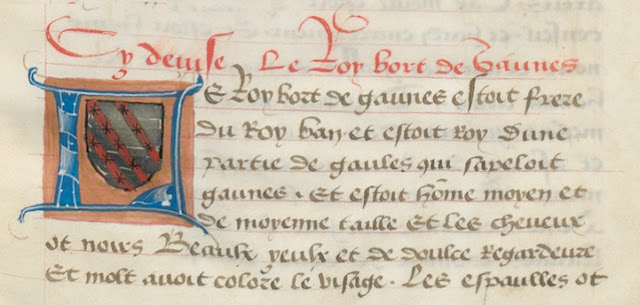 Cy deuise Le Roy bort de Gaunes
LE Roy bort de gaunes estoit frere
du Roy ban et estoit Roy dune
partie de gaules qui sapeloit
gaunes. Et estoit hōme moyen et
de moyenne taille Et les cheueux
ot noirs Beaulx yeulx et de doulce Regardeure
Et molt auoit colore le visage. Les espaulles ot